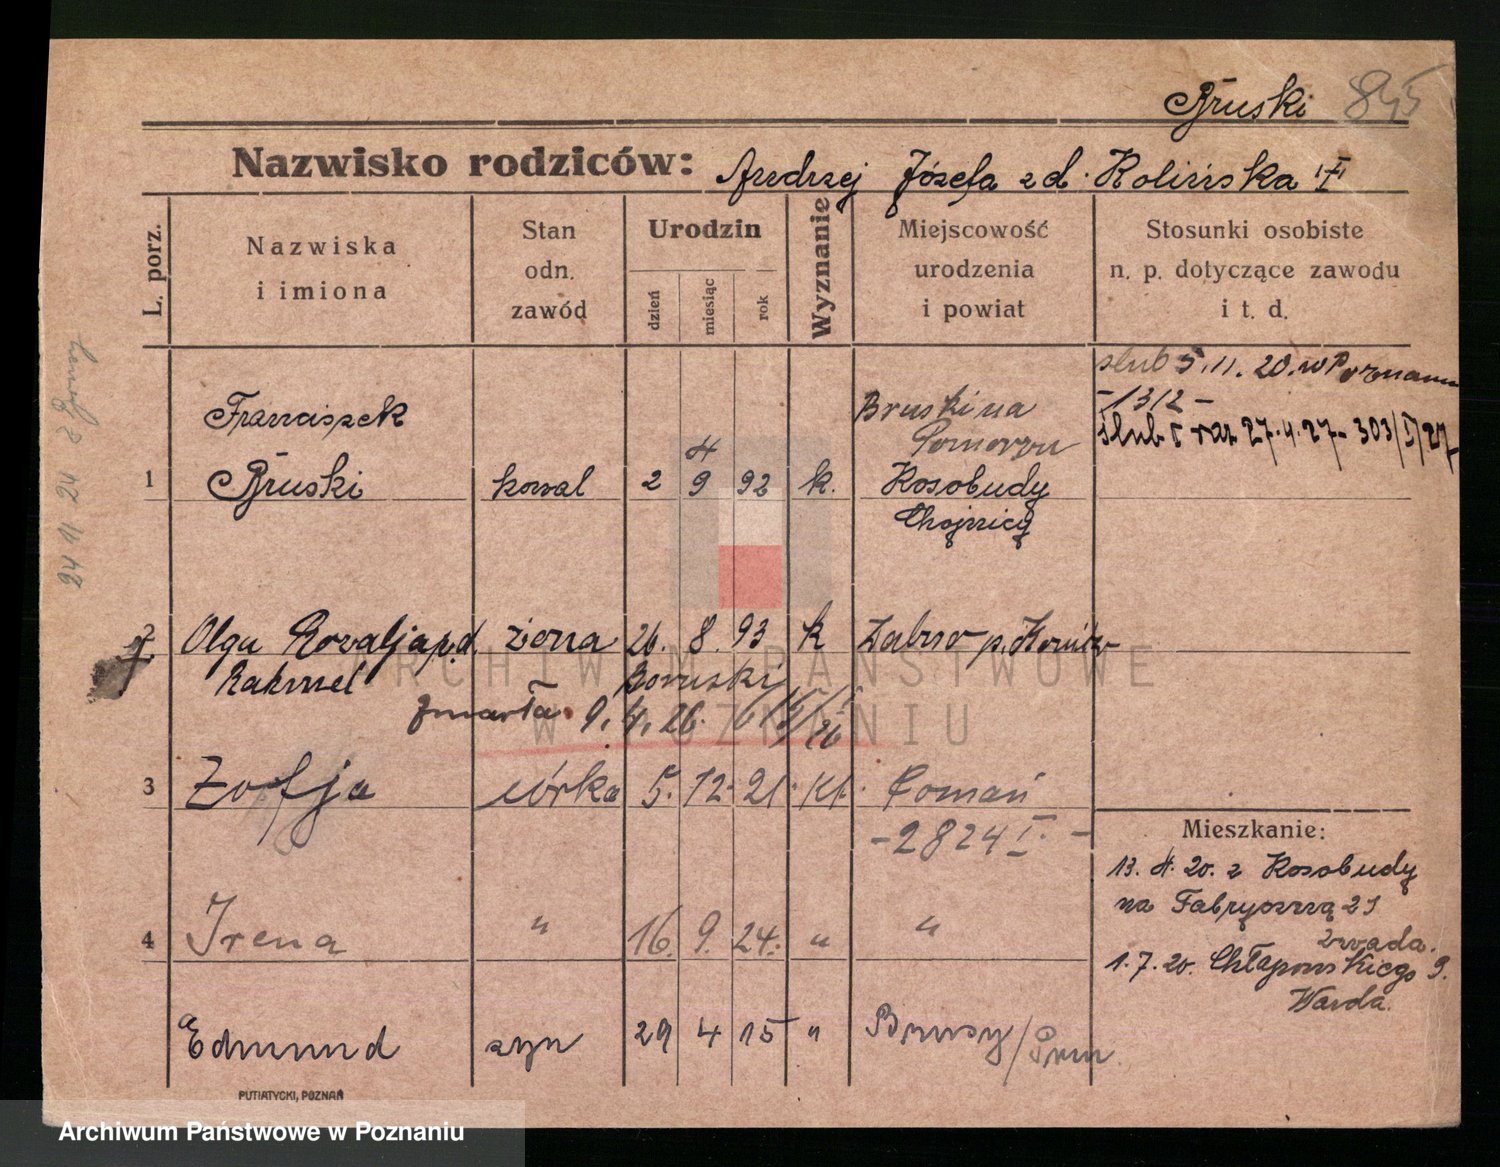 Bruski 845
Nazwisko rodziców: Andrzej Józefa z d. Kolińska
L. porz.
Nazwiska
i imiona
Stan
odn.
zawód
Urodzin
dzień
miesiąc
rok
Wyznanie
Miejscowość
urodzenia
i powiat
Stosunki osobiste
n. p. dotyczące zawodu
i t. d.
ślub 5.11.20. w Poznaniu
-1312-
27.4.27- 303/I/27
Franciszek
Bruski
1
kowal
2 9 92
4
k.
Bruskina
Pomorzu
Kosobudy
Chojnicy
2
Olga
żona
26. 8. 93
k
zmarła 9. 4. 26.
3
Zofja
córka
5. 12. 21.
kt.
Poznań
-2824 I. -
4
Irena
"
16. 9. 24.
"
"
Edmund
syn
29 4 15
"
Brusy/
Mieszkanie:
13. 4. 20. z Kosobudy
na Fabryczną 21
1.7.20. Chłapowskiego 9.
Warda.
24 11 24
PUTIATYCKI, POZNAŃ
ARCHIWUM PAŃSTWOWE
W POZNANIU
Archiwum Państwowe w Poznaniu